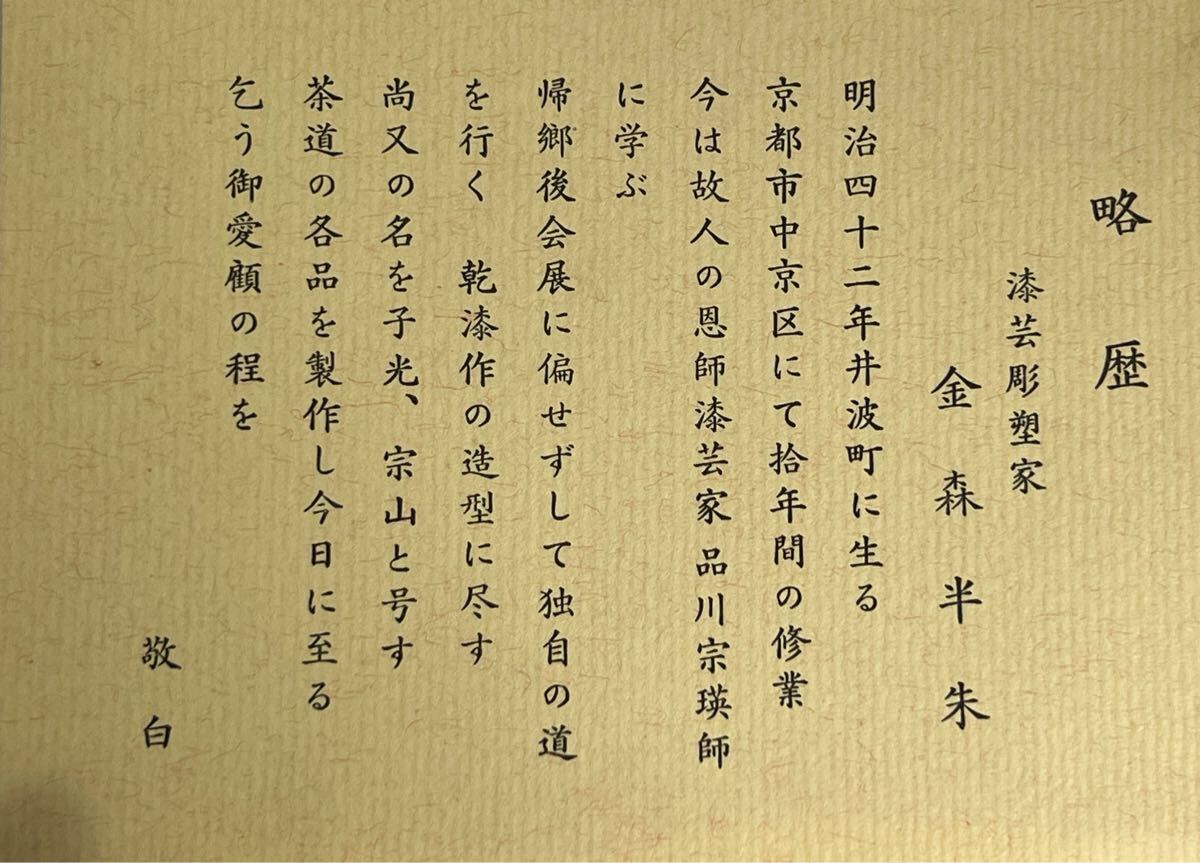 略歴
漆芸彫塑家
金森半朱
明治四十二年井波町に生る
京都市中京区にて拾年間の修業
今は故人の恩師漆芸家品川宗瑛師
に学ぶ
帰郷後会展に偏せずして独自の道
を行く　乾漆作の造型に尽す
尚又の名を子光、宗山と号す
茶道の各品を製作し今日に至る
乞う御愛顧の程を
敬白